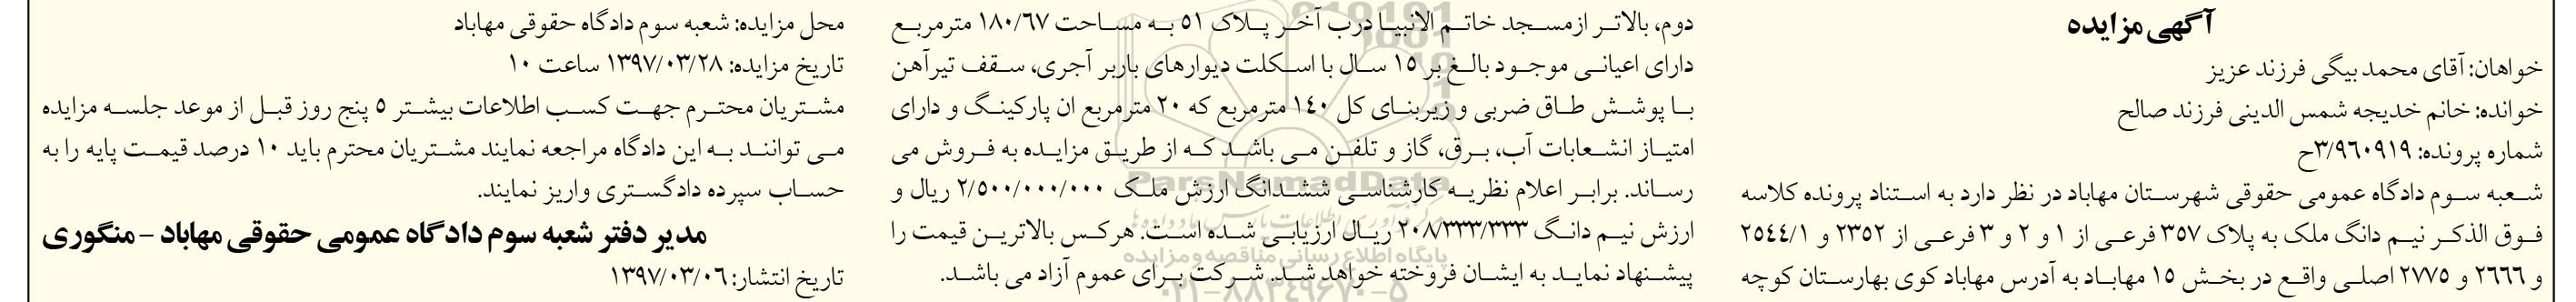 آگهی مزایده
خواهان: آقای محمد بیگی فرزند عزیز
خوانده: خانم خدیجه شمس الدینی فرزند صالح
شماره پرونده: ۳/۹۶۰۹۱۹ح
شعبه سوم دادگاه عمومی حقوقی شهرستان مهاباد در نظر دارد به استناد پرونده کلاسه
فوق الذکر نیم دانگ ملک به پلاک ۳۵۷ فرعی از ۱ و ۲ و ۳ فرعی از ۲۳۵۲ و ۲۵۴۴/۱
و ۲۶۶۶ و ۲۷۷۵ اصلی واقع در بخش ۱۵ مهاباد به آدرس مهاباد کوی بهارستان کوچه
دوم، بالاتر ازمسجد خاتم الانبیا درب آخر پلاک ۵۱ به مساحت ۱۸۰/۶۷ مترمربع
دارای اعیانی موجود بالغ بر ۱۵ سال با اسکلت دیوارهای باربر آجری، سقف تیرآهن
با پوشش طاق ضربی و زیربنای کل ۱۴۰ مترمربع که ۲۰ مترمربع ان پارکینگ و دارای
امتیاز انشعابات آب، برق، گاز و تلفن می باشد که از طریق مزایده به فروش می
رساند. برابر اعلام نظریه کارشناسی ششدانگ ارزش ملک ۲/۵۰۰/۰۰۰/۰۰۰ ریال و
ارزش نیم دانگ ۲۰۸/۳۳۳/۳۳۳ ریال ارزیابی شده است. هرکس بالاترین قیمت را
پیشنهاد نماید به ایشان فروخته خواهد شد. شرکت برای عموم آزاد می باشد.
محل مزایده: شعبه سوم دادگاه حقوقی مهاباد
تاریخ مزایده: ۱۳۹۷/۰۳/۲۸ ساعت ۱۰
مشتریان محترم جهت کسب اطلاعات بیشتر ۵ پنج روز قبل از موعد جلسه مزایده
می توانند به این دادگاه مراجعه نمایند مشتریان محترم باید ۱۰ درصد قیمت پایه را به
حساب سپرده دادگستری واریز نمایند.
مدیر دفتر شعبه سوم دادگاه عمومی حقوقی مهاباد – منگوری
تاریخ انتشار: ۱۳۹۷/۰۳/۰۶
ParsNamadData
پایگاه اطلاع رسانی مناقصه و مزایده
۰۲۱-۸۸۳۴۹۶۷۰-۵